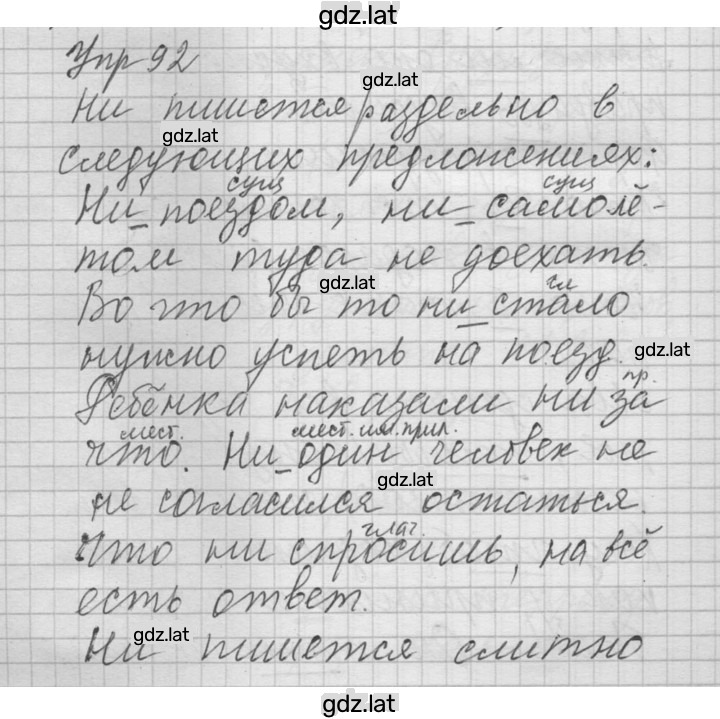 gdz.lat
Упр 92
gdz.lat
Ни пишется раздельно в
gdz.lat
следующих предложениях:
сущ сущ
Ни поездом, ни самолё-
том туда не доехать.
gdz.lat гл
Во что бы то ни стало
нужно успеть на поезд.
gdz.lat
пр.
Ребёнка наказали ни за
мест. мест. им. прил.
что. Ни один человек не
gdz.lat
не согласился остаться.
глаг.
Что ни спросишь, на всё
есть ответ.
gdz.lat
Ни пишется слитно
gdz.lat